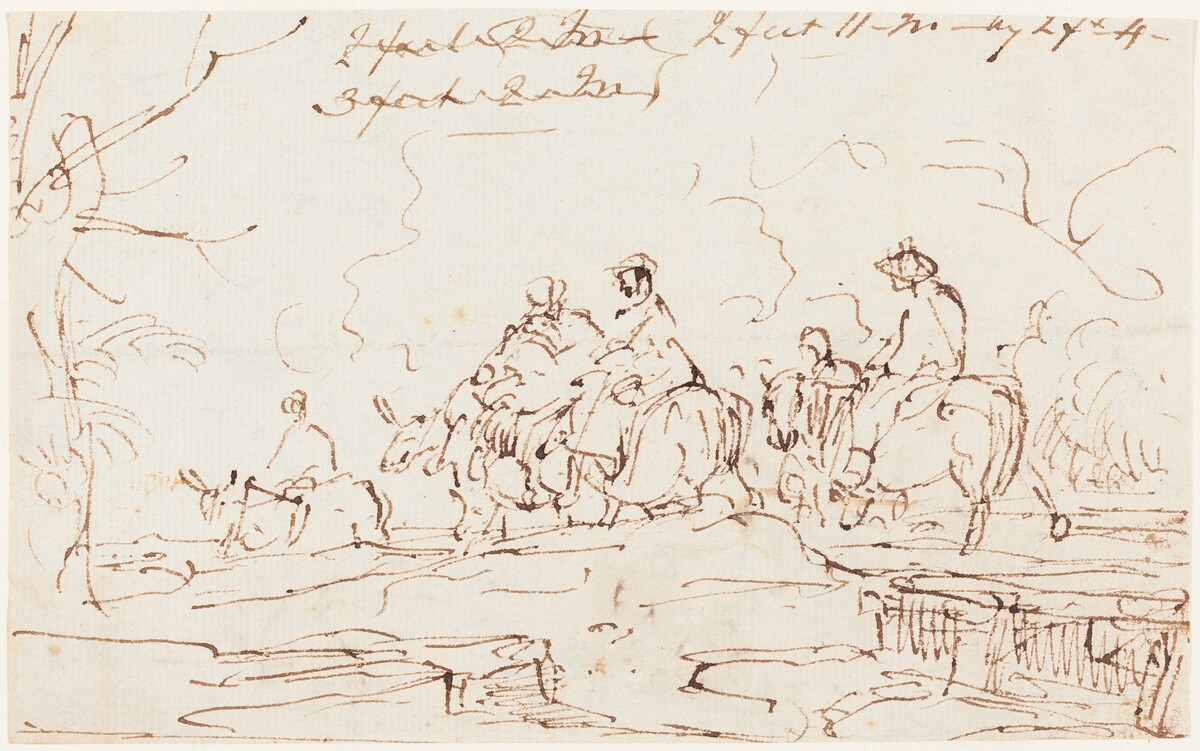 2 feet 2 In 2 feet 11 In by 2 ft 4
3 feet 2 In